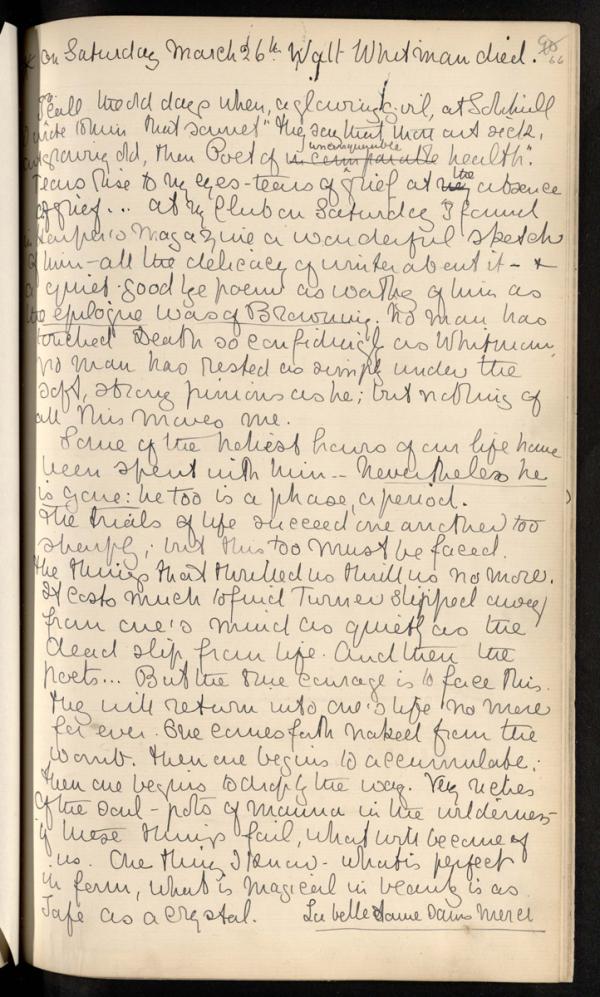 & on Saturday March 26th Walt Whitman died. 66
I recall the old days when, a glowing girl, at Solihull
I wrote to him that sonnet "They say that thou art sick,
art growing old, thou Poet of unconquerable health".
Tears rise to my eyes - tears of grief at the absence
of grief... at my Club on Saturday I found
in Harper's Magazine a wonderful sketch
of him - all the delicacy of winter about it - &
a quiet good-bye poem as worthy of him as
the epilogue was of Browning. No man has
touched Death so confidingly as Whitman,
no man has rested as simply under the
soft, strong pinions as he; but nothing of
all this moves me.
Some of the holiest hours of our life have
been spent with him - Nevertheless he
is gone: he too is a phase, a period.
The trials of life succeed one another too
sharply; but this too must be faced.
The things that thrilled us thrill us no more.
It costs much to find Turner slipped away
from one's mind as quietly as the
dead slip from life. And then the
Poets... But the true courage is to face this.
They will return into one's life no more
for ever. One comes forth naked from the
womb. Then one begins to accumulate;
then one begins to drop by the way. Very riches
of the soul - pots of manna in the wilderness -
if these things fail, what will become of
us. One thing I know - what is perfect
in form, what is magical in beauty is as
safe as a crystal. La belle dame Sans Merci